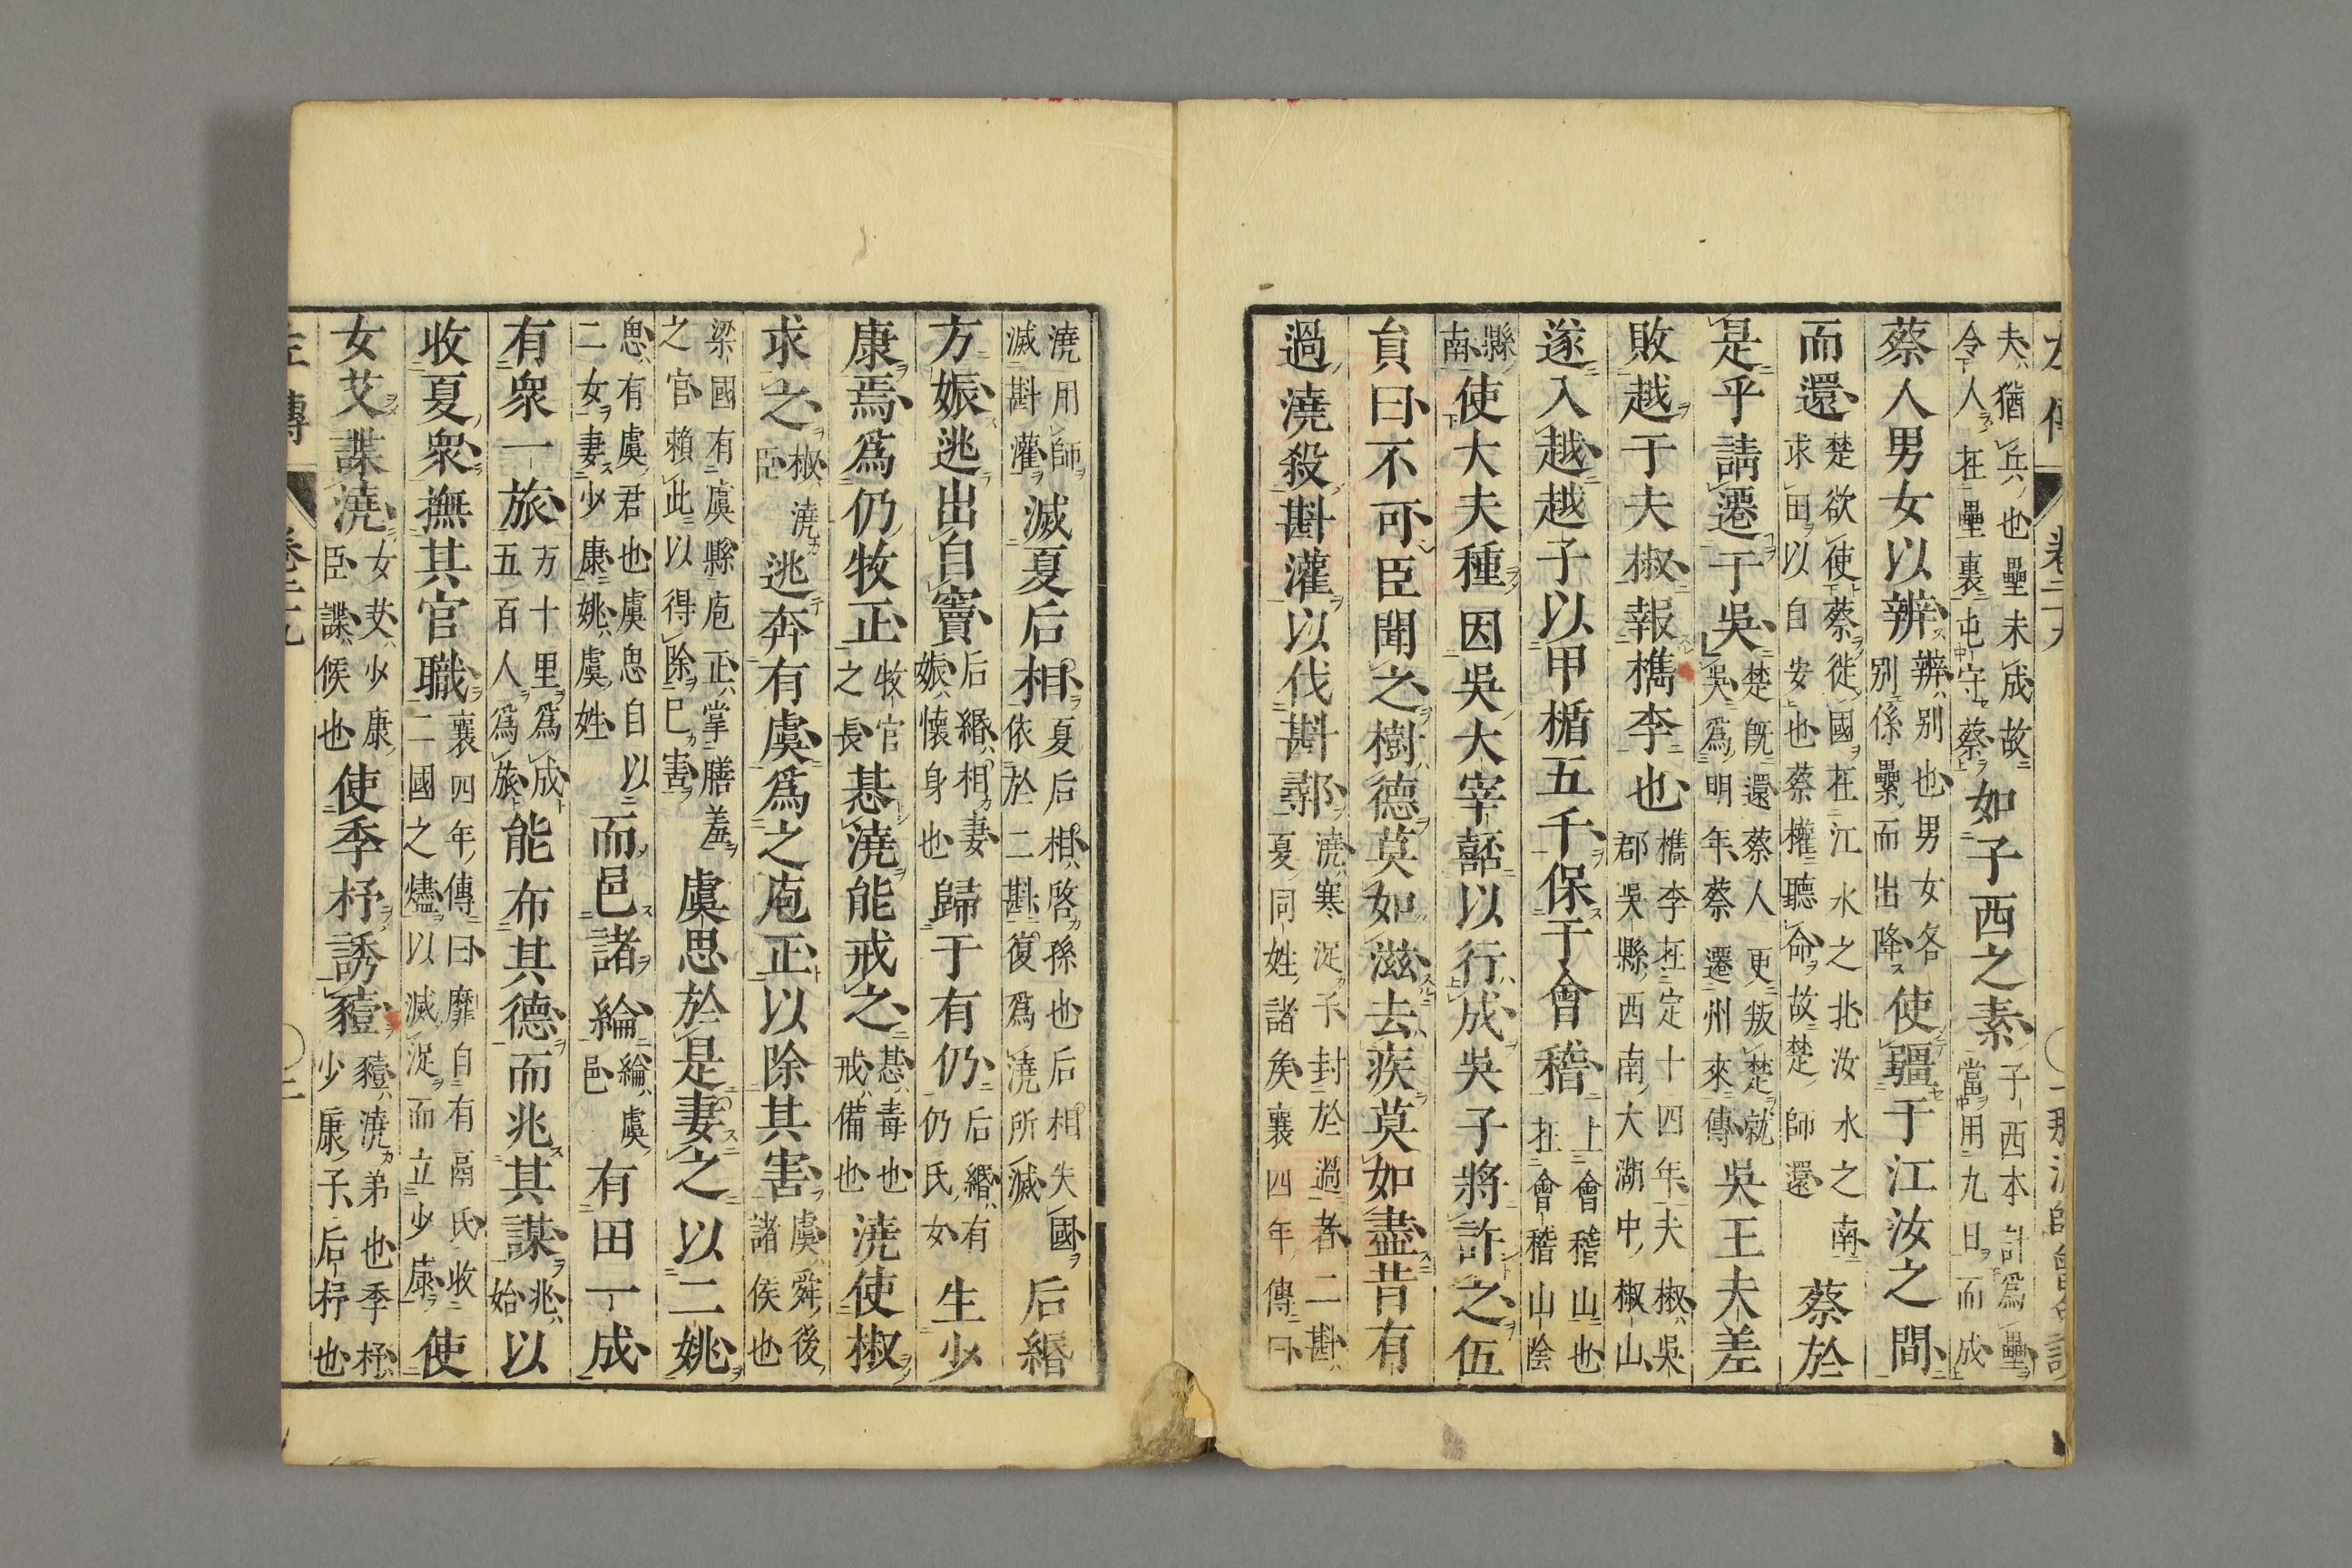 夫猶兵也壘未成故
令人在壘裏屯守蔡
如子西之素
子西本計為壘
當用九日而成
蔡人男女以辨
辨別也男女各
別係纍而出降
使疆于江汝之間
而還
楚欲使蔡徙國在江水之北汝水之南
求田以自安也蔡權聽命故楚師還
蔡於
是乎請遷于吳
楚旣還蔡人更叛楚就
吳為明年蔡遷州來傳
吳王夫差
敗越于夫椒報檇李也
檇李在定十四年夫椒吳
郡吳縣西南大湖中椒山
遂入越越子以甲楯五千保于會稽
上會稽山也
在會稽山陰
縣
南
使大夫種因吳大宰嚭以行成吳子將許之伍
員曰不可臣聞之樹德莫如滋去疾莫如盡昔有
過澆殺斟灌以伐斟鄩
澆寒浞子封於過者二斟
夏同姓諸矦襄四年傳曰
澆用師
滅斟灌
滅夏后相
夏后相啓孫也后相失國
依於二斟復爲澆所滅
后緡
方娠逃出自竇
后緡相妻
娠懷身也
歸于有仍
后緡有
仍氏女
生少
康焉爲仍牧正
牧官
之長
惎澆能戒之
惎毒也
戒備也
澆使椒
求之
椒澆
臣
逃奔有虞爲之庖正以除其害
虞舜後
諸侯也
梁國有虞縣庖正掌膳羞
之官賴此以得除己害
虞思於是妻之以二姚
思有虞君也虞思自以
二女妻少康姚虞姓
而邑諸綸
綸虞
邑
有田一成
有衆一旅
方十里爲成
五百人爲旅
能布其德而兆其謀
兆
始
以
收夏衆撫其官職
襄四年傳曰靡自有鬲氏收
二國之燼以滅浞而立少康
使
女艾諜澆
女艾少康
臣諜候也
使季杼誘豷
豷澆弟也季杼
少康子后杼也